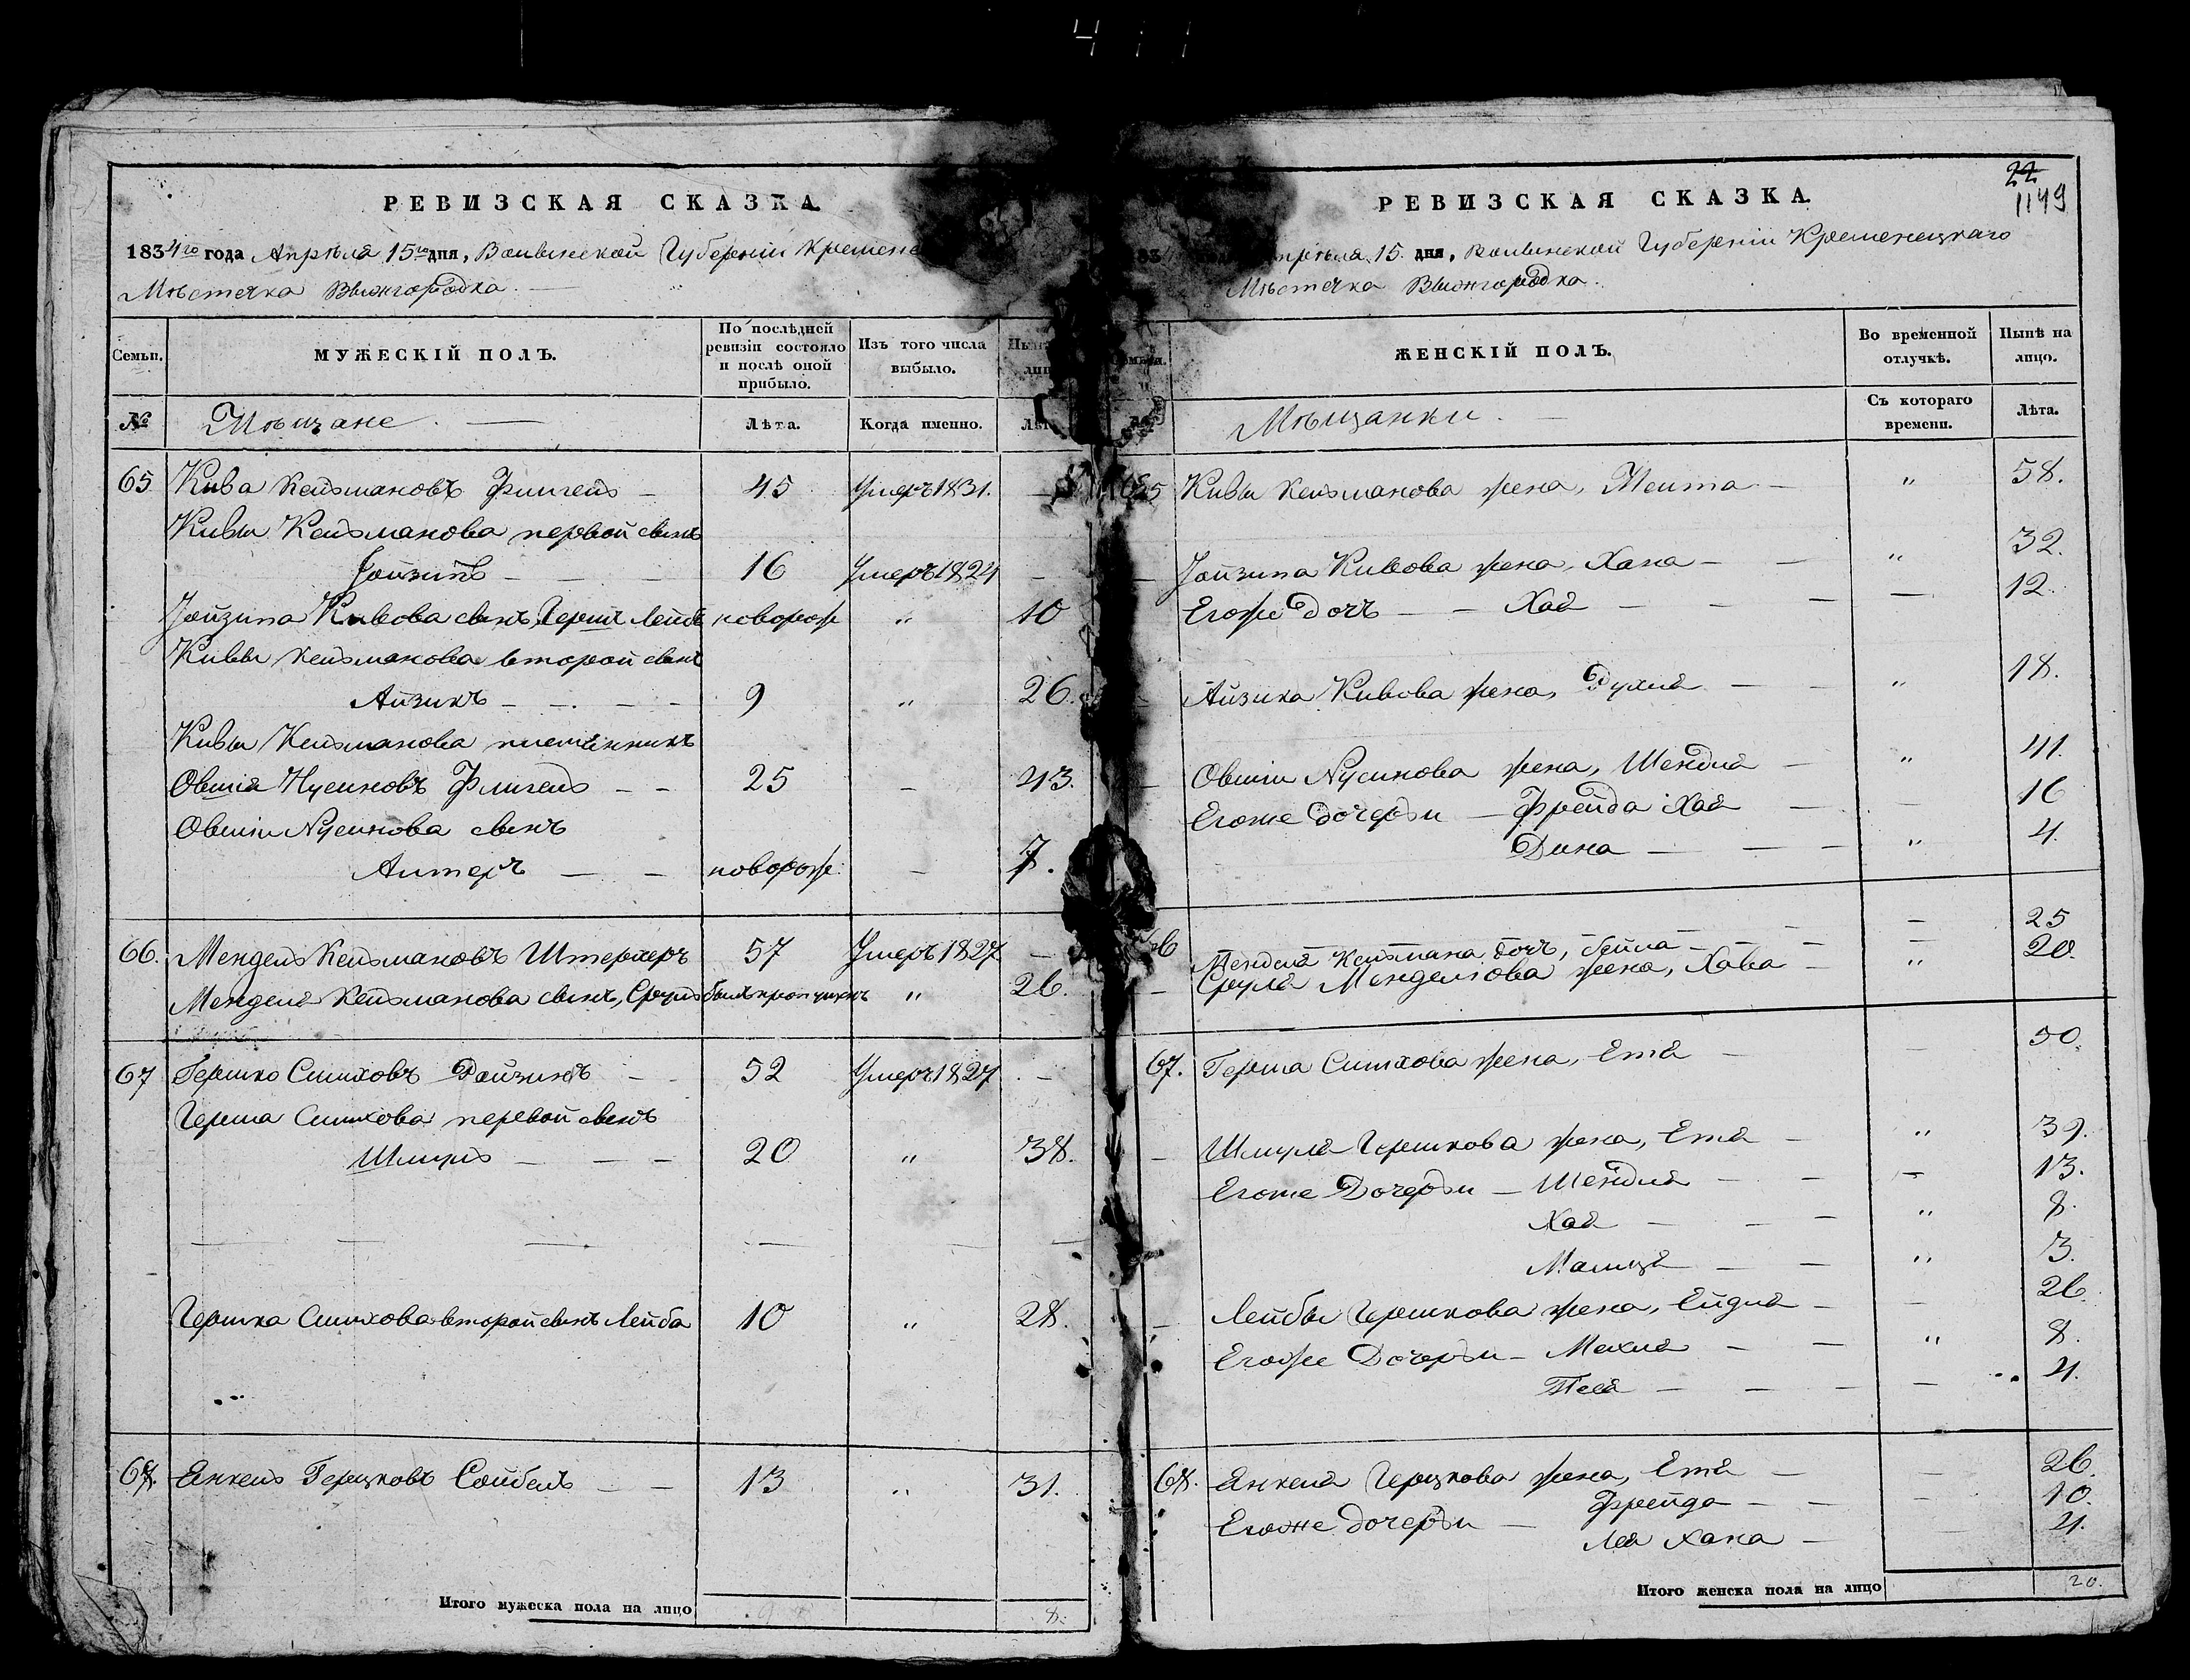 4
РЕВИЗСКАЯ СКАЗКА
1834го года Апрѣля 15го дня, Волынской Губерніи Кременец
Мѣстечка Вышгородка.
Семьи.
МУЖЕСКІЙ ПОЛЪ.
По послѣдней ревизіи состояло и послѣ оной прибыло.
Изъ того числа выбыло.
№
Мѣщане.
Лѣта.
Когда именно.
65 Кива Кельмановъ Флигель 45 Умеръ 1831. —
Кивы Кельманова первой сынъ
16 Умеръ 1824 —
Кивова сынъ, Гершъ Лейба новорож " 10
Кивы Кельманова второй сынъ
Айзикъ 9 " 26.
Кивы Кельманова племянникъ
Овшія Нусиновъ Флигель 25 — 43.
Овшіи Нусинова сынъ
Алтеръ новорож. — 7.
66. Мендель Кельмановъ 57 Умеръ 1827 —
Менделя Кельманова сынъ, Сруль былъ пропущенъ " 26.
67 Гершко Симховъ 52 Умеръ 1827 —
Герша Симхова первой сынъ
Шмуль 20 " 38.
Гершка Симхова второй сынъ Лейба 10 " 28.
68. Янкель Герцковъ Сойбель 13 " 31.
Итого мужеска пола на лицо 8.
РЕВИЗСКАЯ СКАЗКА
22
1149
Апрѣля 15. дня, Волынской Губерніи Кременецкаго
Мѣстечка Вышгородка.
ЖЕНСКІЙ ПОЛЪ.
Во временной отлучкѣ.
Нынѣ на лицо.
Мѣщанки.
Съ котораго времени.
Лѣта.
65 Кивы Кельманова жена, Мента " 58.
Кивова жена, Хана " 32.
Егоже дочь Хая — 12.
Айзика Кивова жена, Духля " 18.
Овшіи Нусинова жена, Шендля " 41.
Егоже дочери Фрейда Хая 16
Дина " 4.
66 Менделя Кельмана дочь, Бейла — 25
Сруля Менделiова жена, Хава " 20.
67. Герша Симхова жена, Етя — 50.
Шмуля Гершкова жена, Етя " 39.
Егоже Дочери Шендля — 13.
Хая " 8.
Малця " 3.
Лейбы Гершкова жена, Ейдля — 26.
Егоже Дочери Махля " 8.
Песя — 4.
68. Янкеля Герцкова жена, Етя — 26.
Фрейда — 10.
Егоже дочери
Лея Хана 4.
Итого женска пола на лицо 20.